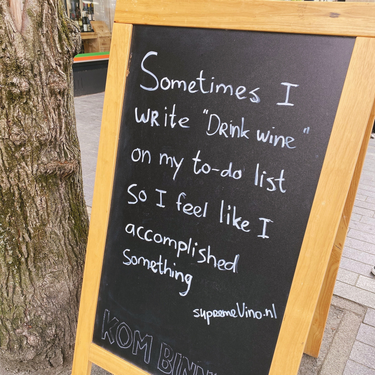 Sometimes I
write "Drink wine"
on my to-do list
So I feel like I
accomplished
something
supremeVino.nl
KOM